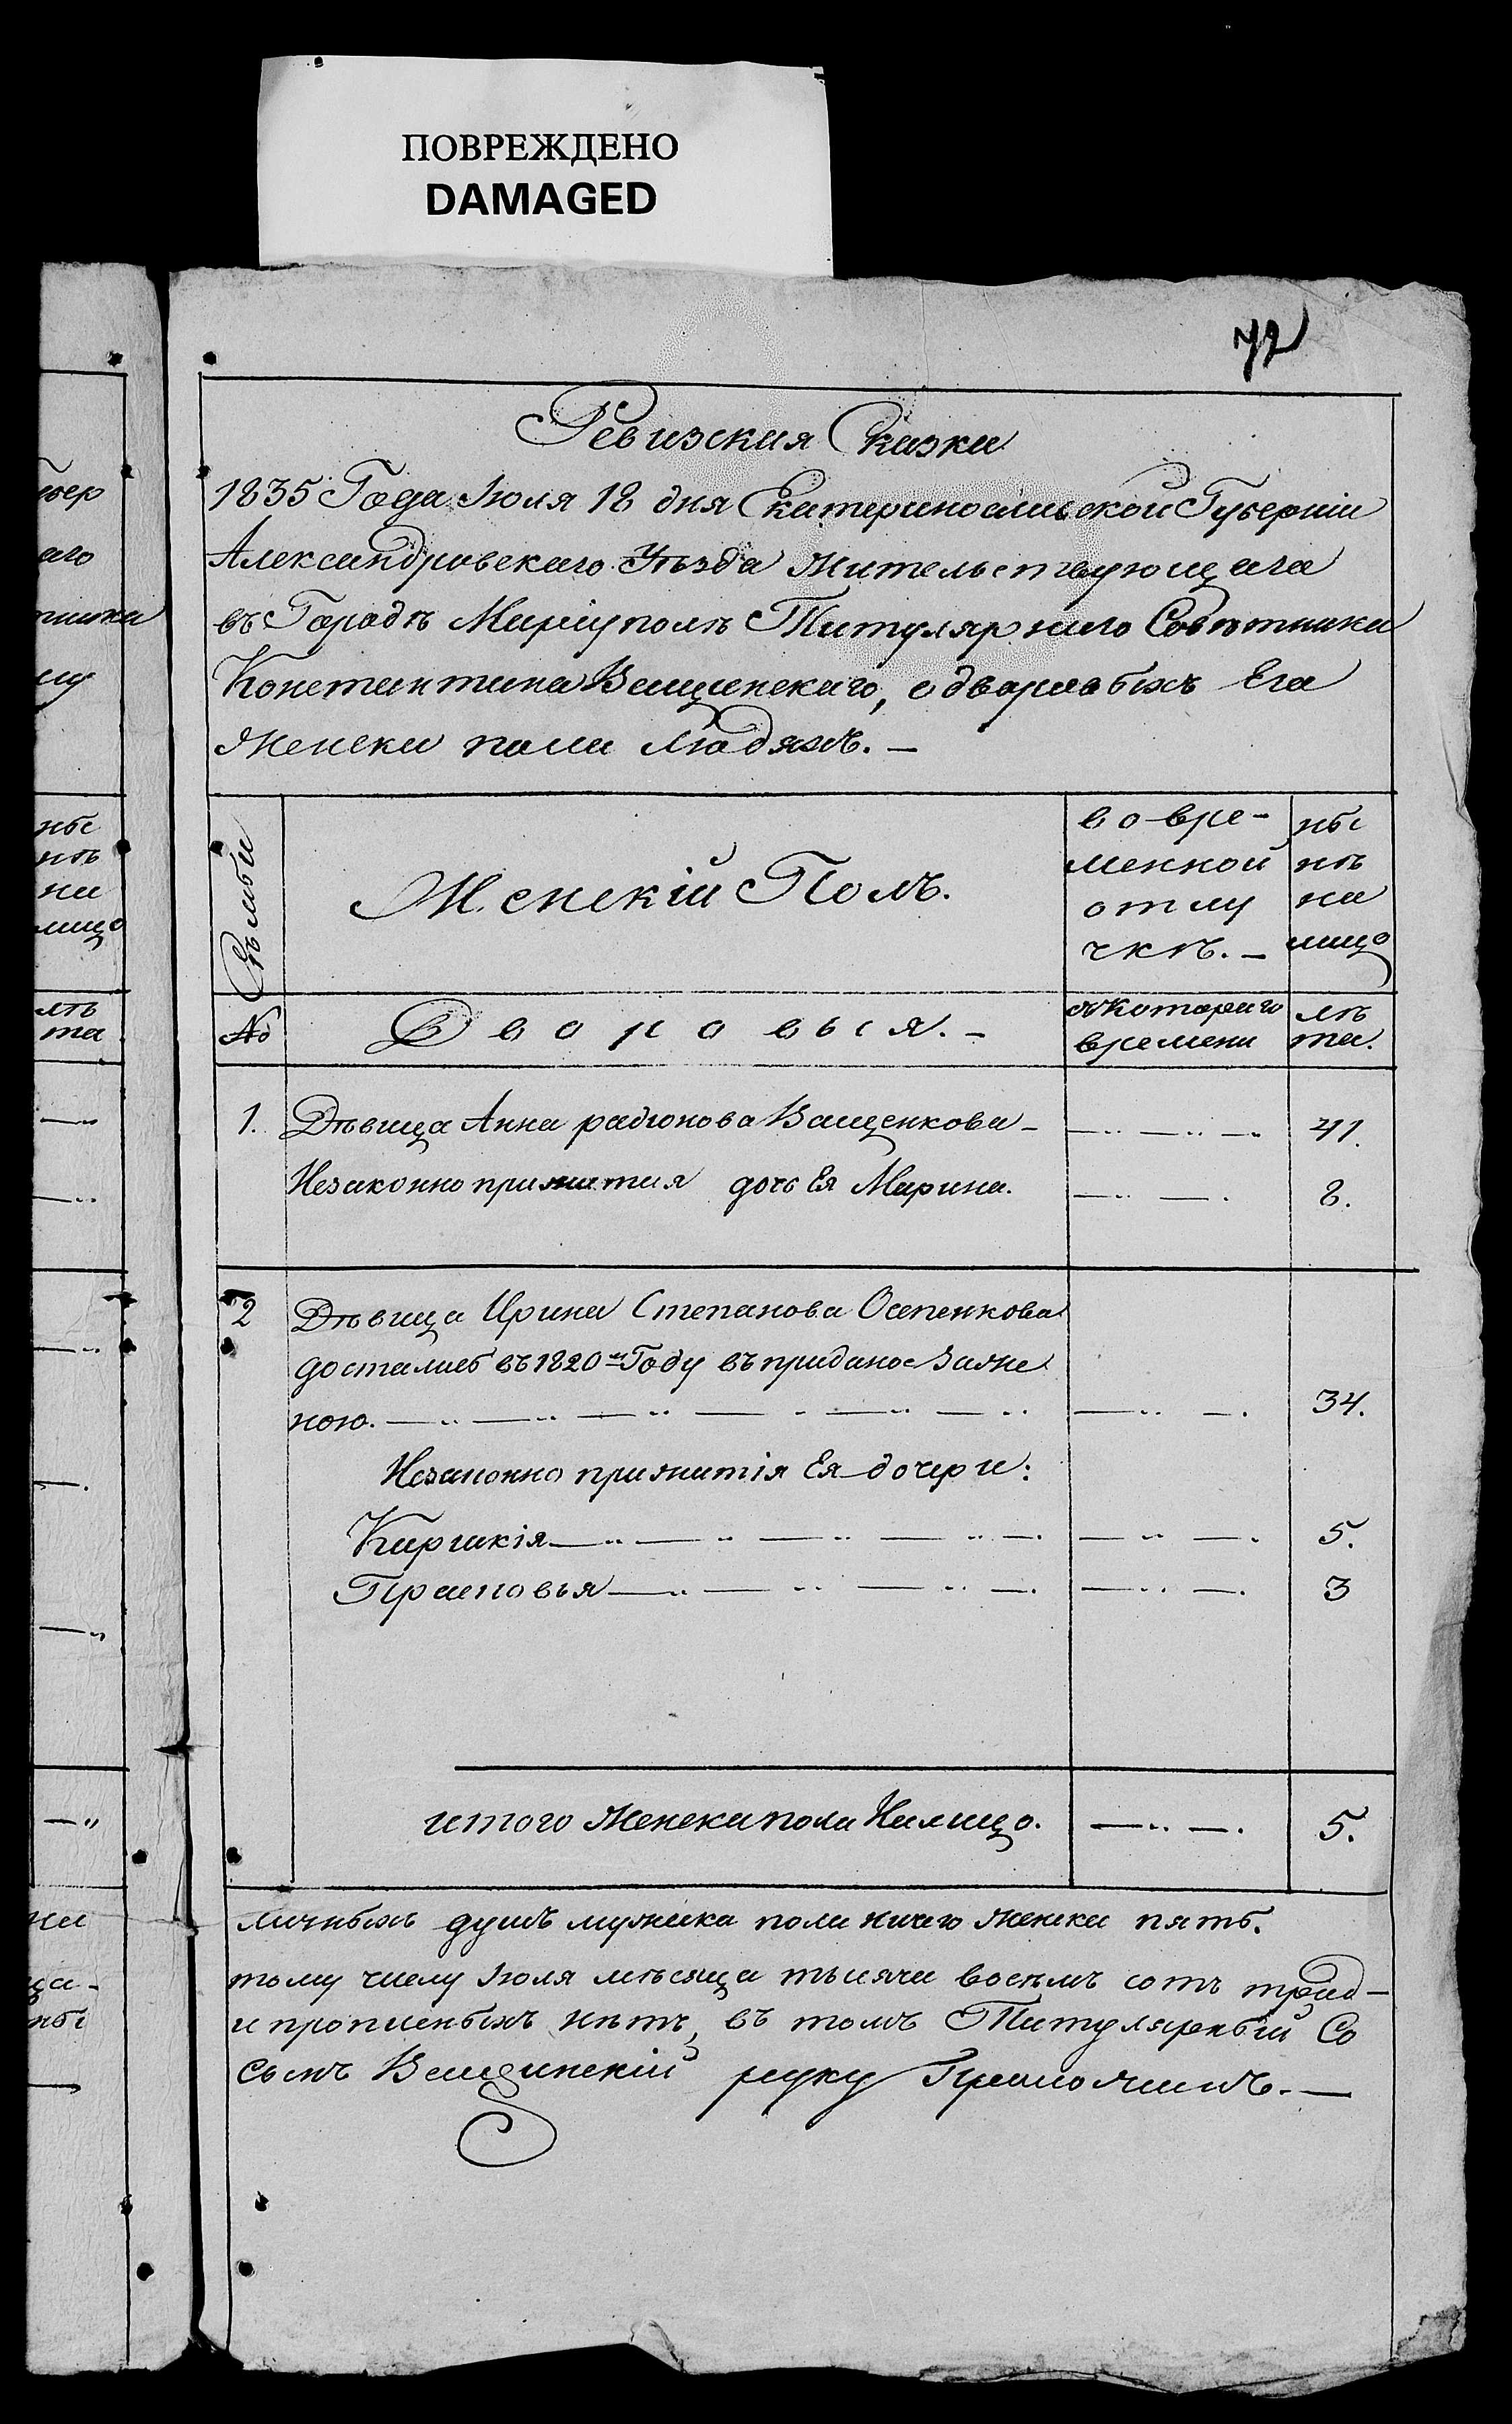 ПОВРЕЖДЕНО
DAMAGED
72
Ревизския Сказки
1835 Года Іюля 18 дня Екатеринославской Губерніи
Александровскаго Уѣзда Жительствующаго
въ Городѣ Маріуполѣ Титулярнаго Совѣтника
Константина Ващинскаго, о дворовыхъ Его
Женска пола людяхъ. —
Семьи
Женскій Полъ.
во вре-
менной
отлу
чкѣ. —
ны
нѣ
на
лицо
№
Дворовыя. —
съ Котораго
времени
лѣ
та.
1. Дѣвица Анна радіонова Ващенкова — 41.
Незаконно прижитая дочь Ея Марина. 8.
2 Дѣвица Ирина Степанова Осепенкова
досталась въ 1820 м Году въ приданое За же
ною. 34.
Незаконно прижитія Ея дочери:
5.
Прасковья 3
итого Женска пола На лицо. 5.
личныхъ душъ мужска пола ничего женска пять.
тому числу Іюля мѣсяца тысяча восемь сотъ трид-
и прописныхъ нѣтъ, въ томъ Титулярный Со
сынъ Ващинскій руку Приложилъ. —